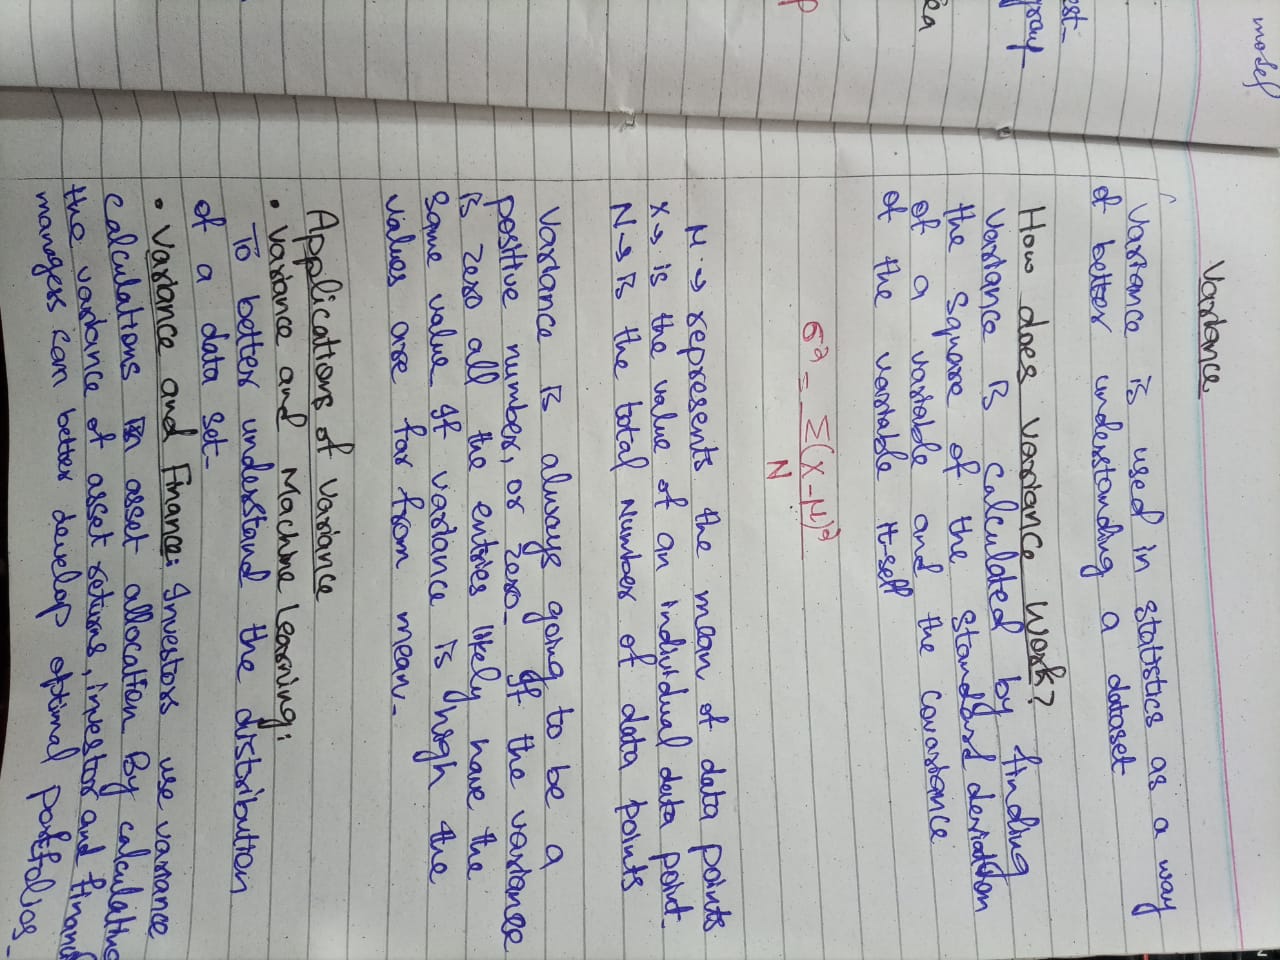 model
Variance
Variance is used in statistics as a way
of better understanding a dataset
est-
group
How does variance work?
Variance is calculated by finding
the square of the standard deviation
ea
of a variable and the covariance
of the variable it-self
σ² = Σ(X-μ)²
N
p
μ → represents the mean of data points
X → is the value of an individual data point.
N → is the total Number of data points
Variance is always going to be a
positive number, or zero. If the variance
is zero all the entries likely have the
same value If variance is high the
values are far from mean.
Applications of variance
• Variance and Machine Learning:
To better understand the distribution
of a data set-
• Variance and Finance: Investors use variance
calculations in asset allocation By calculating
the variance of asset returns, investor and financ
managers can better develop optimal portfolios.